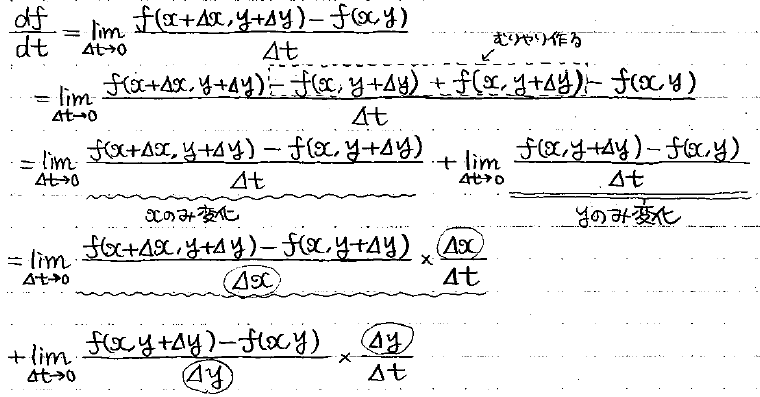 df/dt = lim Δt→0 f(x+Δx, y+Δy) − f(x, y) / Δt
むりやり作る
= lim Δt→0 f(x+Δx, y+Δy) − f(x, y+Δy) + f(x, y+Δy) − f(x, y) / Δt
= lim Δt→0 f(x+Δx, y+Δy) − f(x, y+Δy) / Δt + lim Δt→0 f(x, y+Δy) − f(x, y) / Δt
xのみ変化 yのみ変化
= lim Δt→0 f(x+Δx, y+Δy) − f(x, y+Δy) / Δx × Δx / Δt
+ lim Δt→0 f(x, y+Δy) − f(x, y) / Δy × Δy / Δt